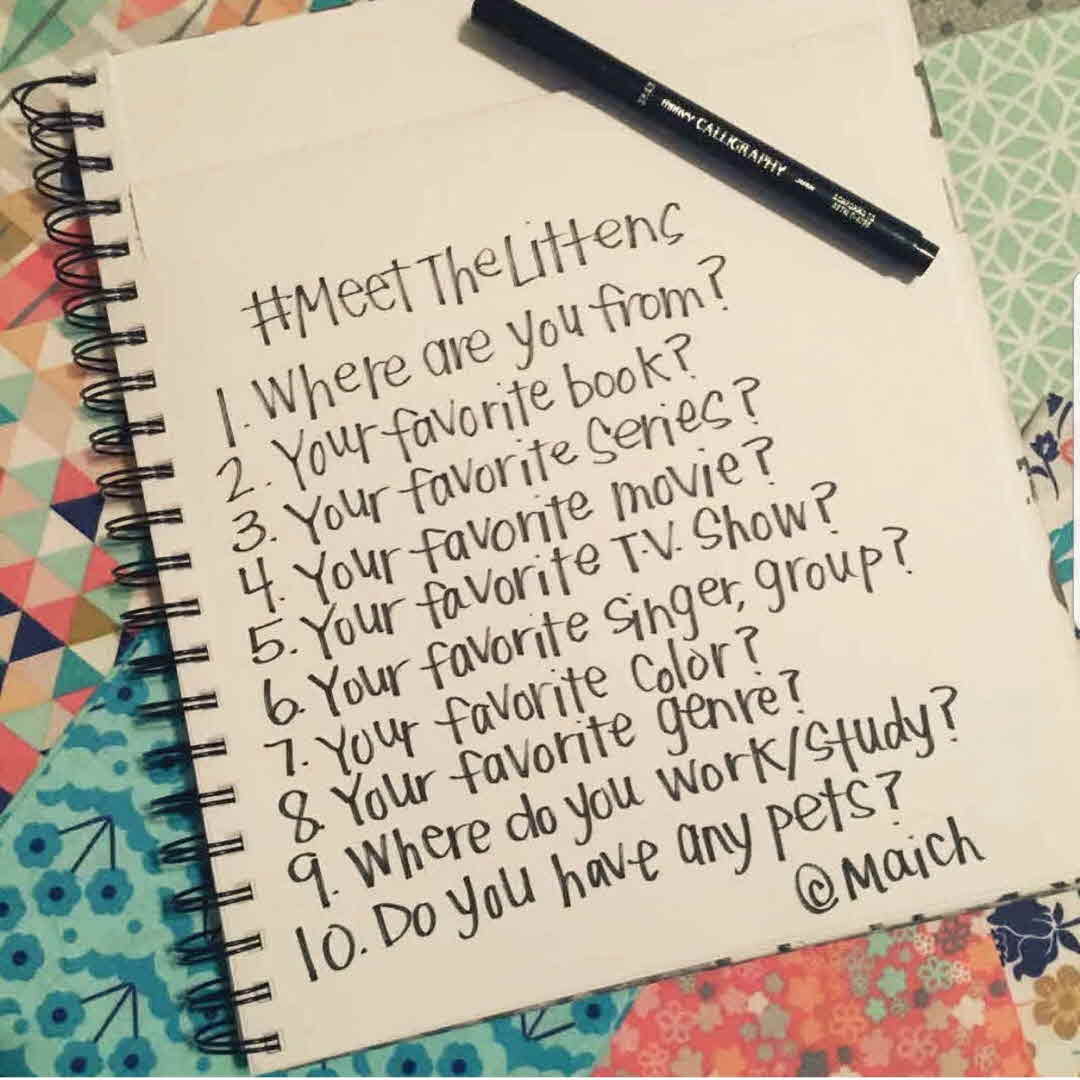 marvy CALLIGRAPHY
#MeetTheLittens
1. Where are you from?
2. Your favorite book?
3. Your favorite Series?
4. Your favorite movie?
5. Your favorite T.V. Show?
6. Your favorite Singer, group?
7. Your favorite Color?
8. Your favorite genre?
9. Where do you work/study?
10. Do you have any pets?
@Maich